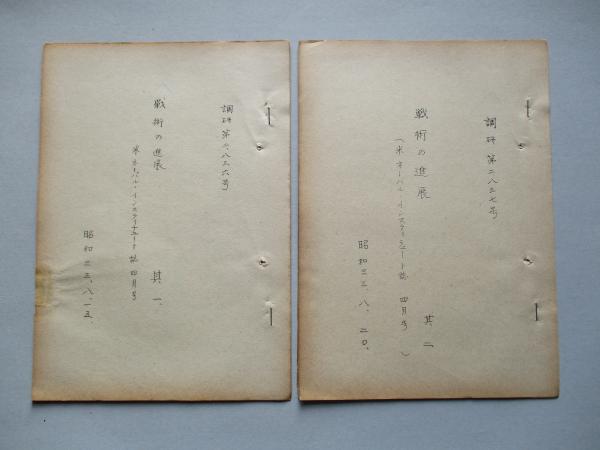 調研第二八三六号
戦術の進展 其一、
米ネーバル・インスティチュート誌 四月号
昭和三三、八、一五、
調研第二八三七号
戦術の進展 其二、
(米 ネーバル・インスティチュート誌 四月号)
昭和三三、八、二〇、